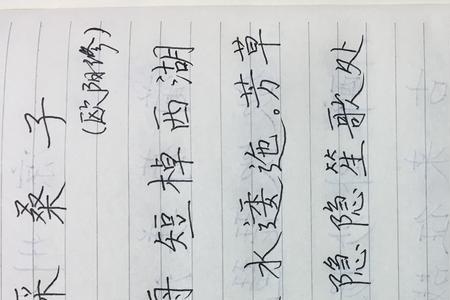 采桑子
(欧阳修)
舟短棹西湖
水逶迤。芳草
隐隐笙歌处